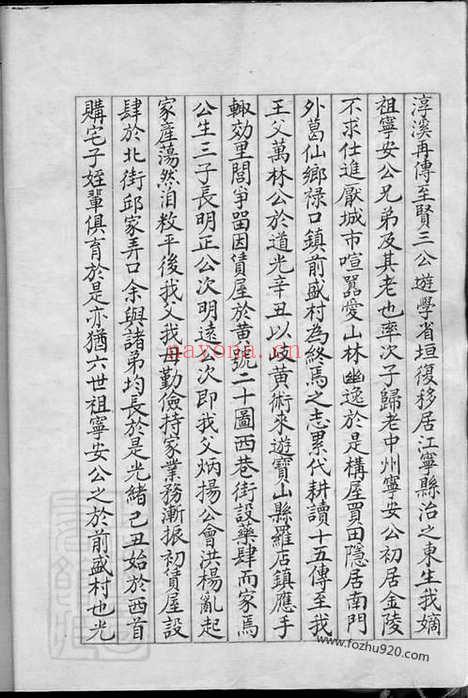 淳溪再傳至賢三公遊學省垣復移居江寧縣治之東生我嫡
祖寧安公兄弟及其老也率次子歸老中州寧安公初居金陵
不求仕進厭城市喧囂愛山林幽逸於是構屋買田隱居南門
外葛仙鄉祿口鎮前盛村為終焉之志累代耕讀十五傳至我
王父萬林公於道光辛丑以岐黃術来遊寶山縣羅店鎮應手
輙効里閭爭留因賃屋於黃號二十圖西巷街設藥肆而家焉
公生三子長明正公次明遠公次即我父炳揚公會洪楊亂起
家產蕩然洎敉平後我父我母勤儉持家業務漸振初賃屋設
肆於北街邱家弄口余與諸弟均長於是光緒己丑始於西首
購宅子姪輩俱育於是亦猶六世祖寧安公之於前盛村也光
nayona.cn
www.fozhu920.com